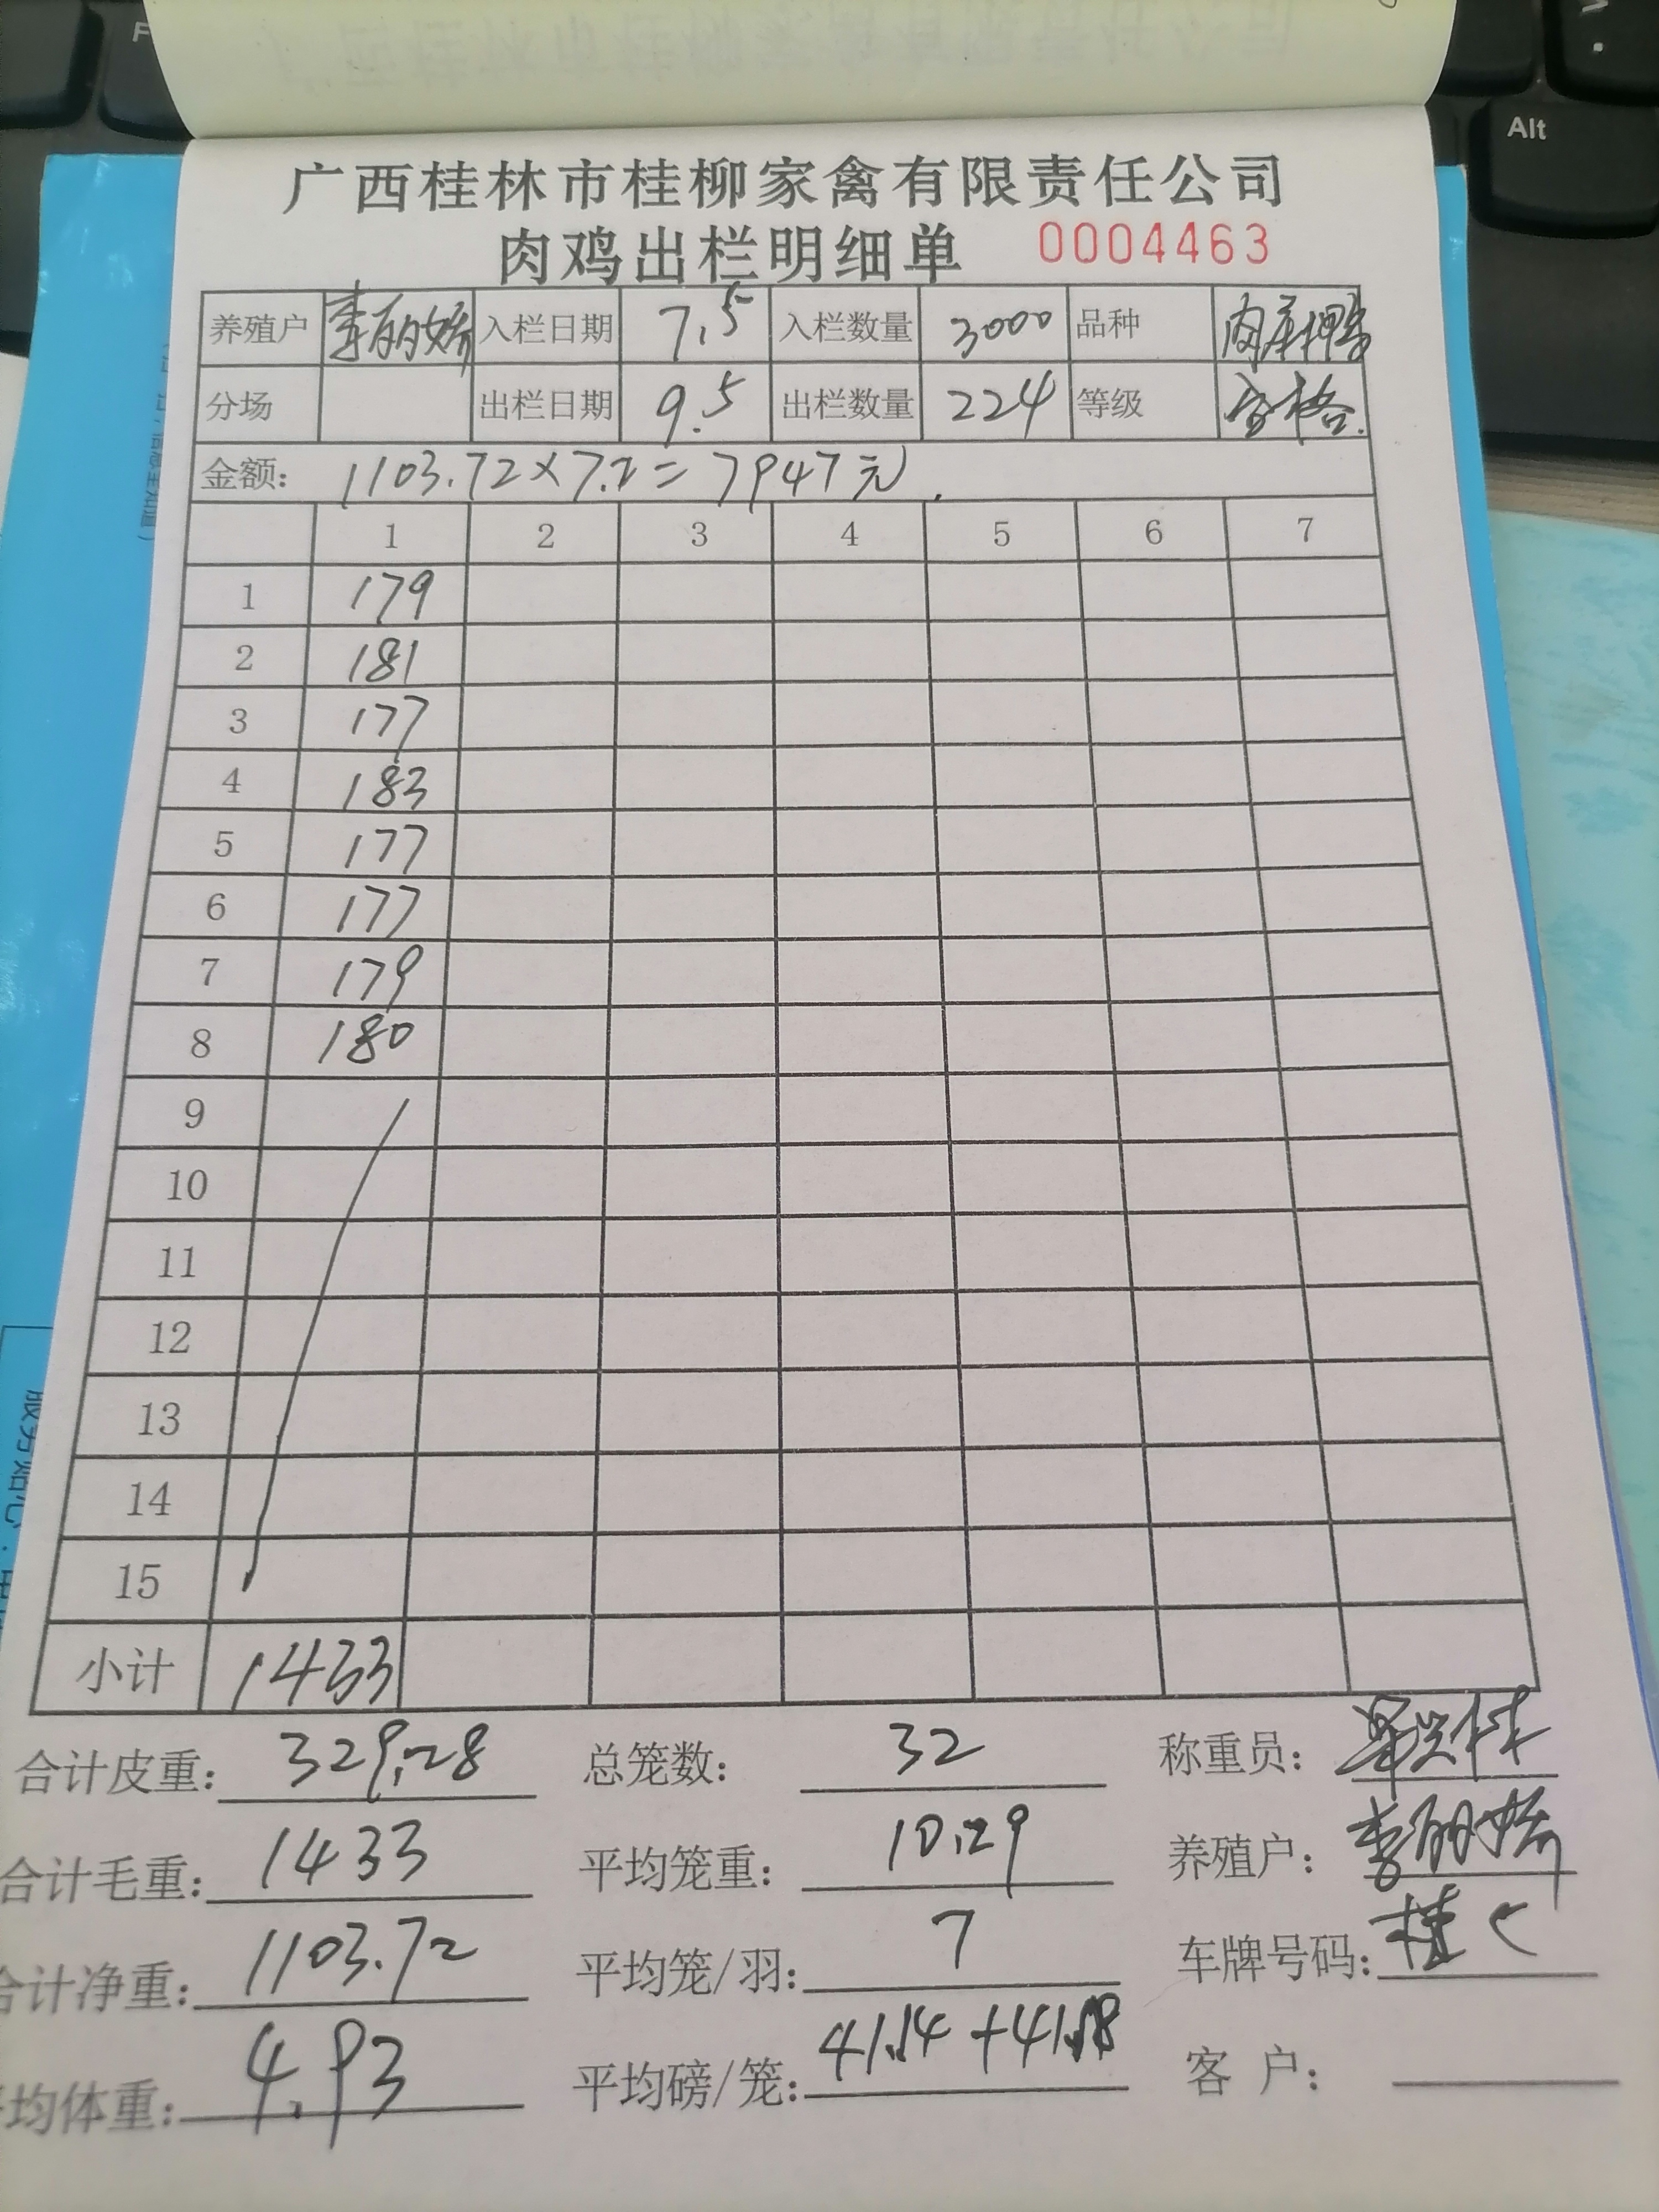 Alt
广西桂林市桂柳家禽有限责任公司
肉鸡出栏明细单 0004463
养殖户 李丽娇 入栏日期 7.5 入栏数量 3000 品种
分场 出栏日期 9.5 出栏数量 224 等级 合格.
金额: 1103.72×7.2=7947元.
1 2 3 4 5 6 7
1 179
2 181
3 177
4 183
5 177
6 177
7 179
8 180
9
10
11
12
13
14
15
小计 1433
合计皮重: 329.28 总笼数: 32 称重员:
合计毛重: 1433 平均笼重: 10.29 养殖户: 李丽娇
合计净重: 1103.72 平均笼/羽: 7 车牌号码: 桂C
平均体重: 4.93 平均磅/笼: 41.14+41.18 客 户: